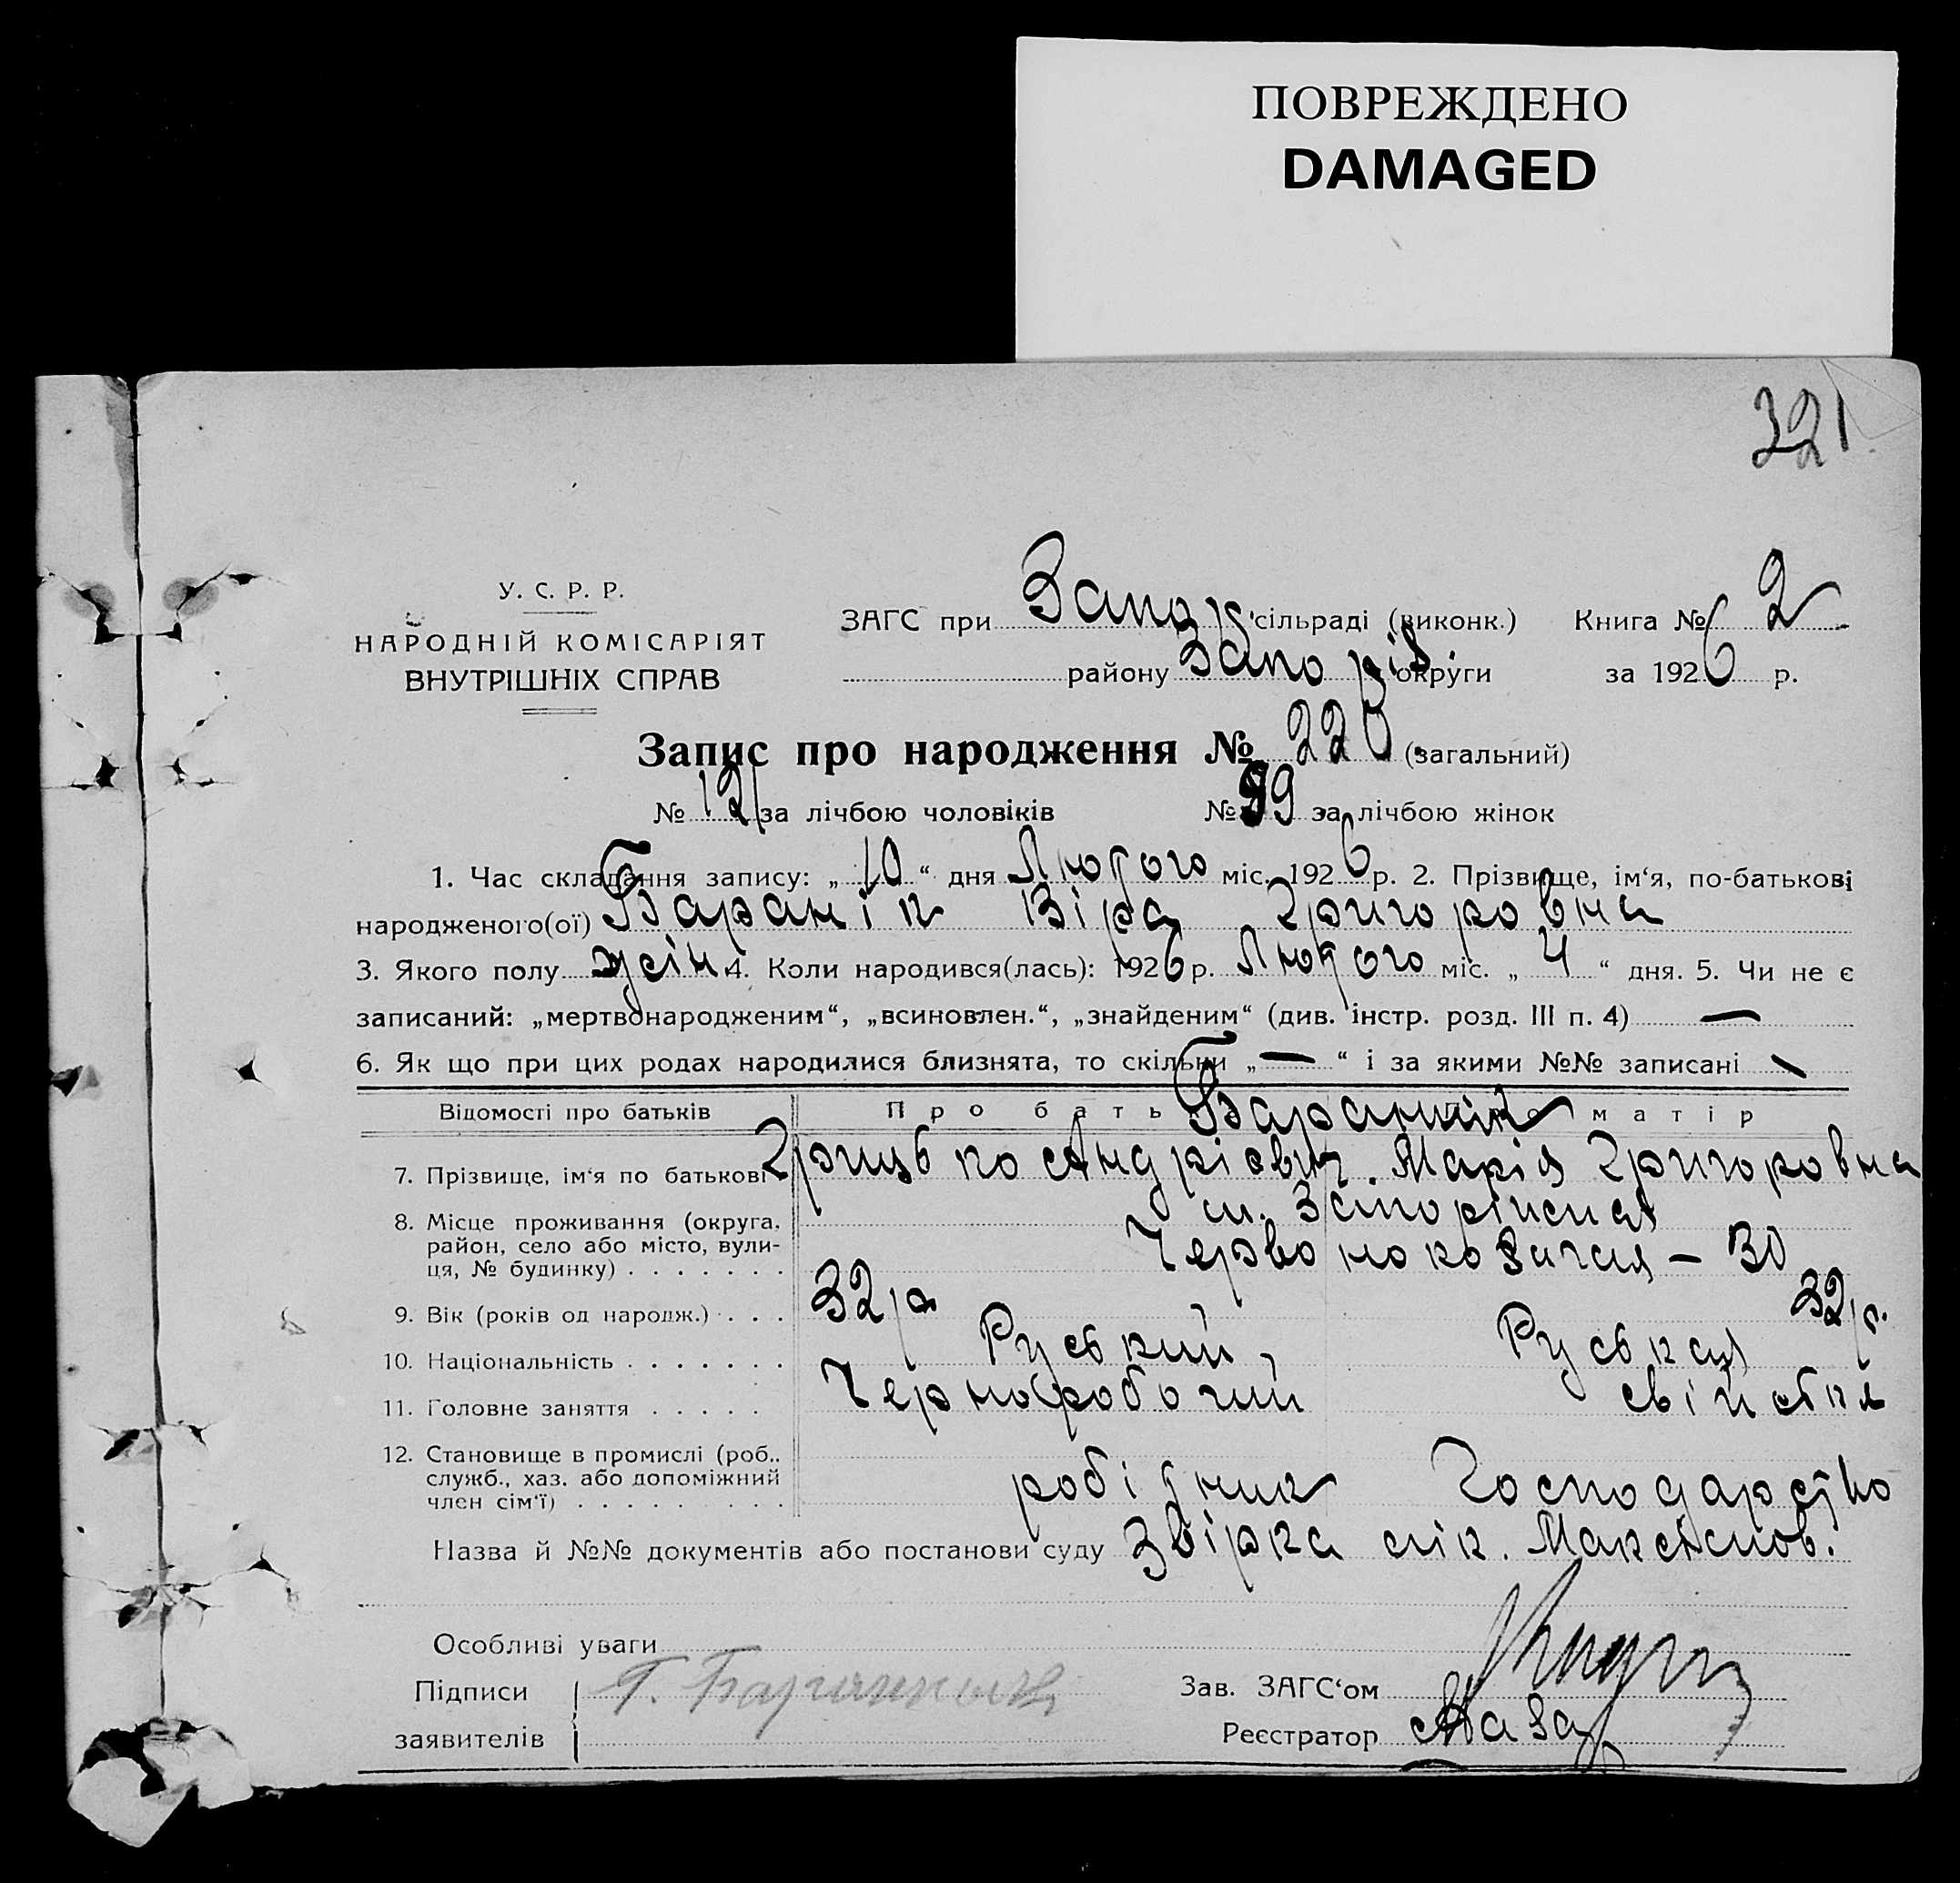 ПОВРЕЖДЕНО
DAMAGED
321
У. С. Р. Р.
НАРОДНІЙ КОМІСАРІЯТ
ВНУТРІШНІХ СПРАВ
ЗАГС при Запор. сільраді (виконк.) Книга № 2
району Запоріз. округи за 1926 р.
Запис про народження № 220 (загальний)
№ 121 за лічбою чоловіків № 99 за лічбою жінок
1. Час складання запису: „10“ дня Лютого міс. 1926 р. 2. Прізвище, ім‘я, по-батькові
народженого(ої) Баранік Віра Григоровна
3. Якого полу жін. 4. Коли народився(лась): 1926 р. Лютого міс. „4“ дня. 5. Чи не є
записаний: „мертвонародженим“, „всиновлен.“, „знайденим“ (див. інстр. розд. III п. 4) —
6. Як що при цих родах народилися близнята, то скільки „—“ і за якими №№ записані —
Відомості про батьків Про батька Про матір
Бараник
7. Прізвище, ім‘я по батькові Грицько Андрієвич. Марія Григоровна
8. Місце проживання (округа, район, село або місто, вулиця, № будинку) м.
Червонокозачая — 30
9. Вік (років од народж.) 32 р. 32 р.
10. Національність Руський Руськая
11. Головне заняття Чернорабочий свійстве
12. Становище в промислі (роб., служб., хаз. або допоміжний член сім‘ї) робітник Господарство
Назва й №№ документів або постанови суду Звірка лік.
Особливі уваги
Підписи
заявителів
Зав. ЗАГС‘ом
Реєстратор